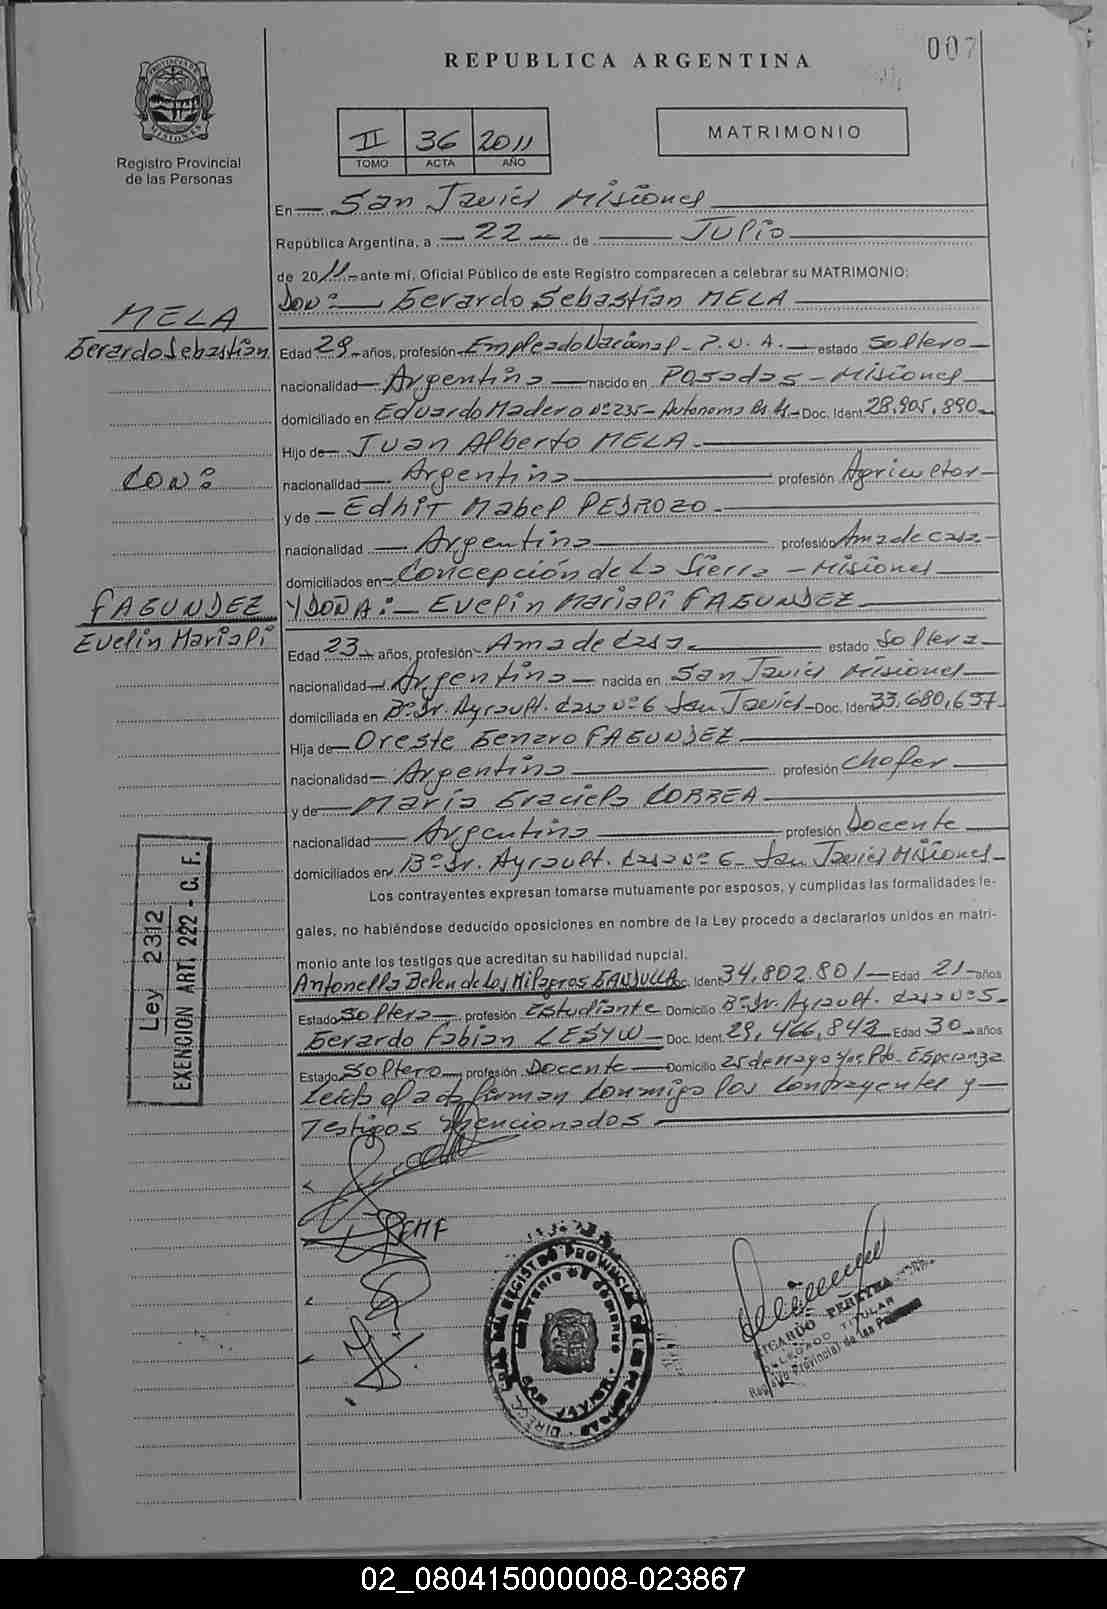 007
REPUBLICA ARGENTINA
PROVINCIA DE MISIONES
Registro Provincial
de las Personas
II 36 2011
TOMO ACTA AÑO
MATRIMONIO
En San Javier Misiones
República Argentina, a 22 de Julio
de 2011 ante mí, Oficial Público de este Registro comparecen a celebrar su MATRIMONIO:
Don: Gerardo Sebastián MELA
MELA
Gerardo Sebastián
Edad 29 años, profesión Empleado Nacional - P.N.A. estado Soltero
nacionalidad Argentina nacido en Posadas - Misiones
domiciliado en Eduardo Madero Nº 235 - Autonoma Bs As - Doc. Ident. 28.905.890
Hijo de Juan Alberto MELA
CON:
nacionalidad Argentina profesión Agricultor
y de Edhit Mabel PEDROZO
nacionalidad Argentina profesión Ama de casa
domiciliados en Concepción de La Sierra - Misiones
FAGUNDEZ
Evelin Mariali
Y DOÑA: Evelin Mariali FAGUNDEZ
Edad 23 años, profesión Ama de Casa estado Soltera
nacionalidad Argentina nacida en San Javier Misiones
domiciliada en Bº Dr. Ayrault. Casa Nº 6 San Javier - Doc. Ident. 33.680.657
Hija de Oreste Genaro FAGUNDEZ
nacionalidad Argentina profesión Chofer
y de María Graciela CORREA
nacionalidad Argentina profesión Docente
domiciliados en Bº Dr. Ayrault. Casa Nº 6 - San Javier Misiones
Los contrayentes expresan tomarse mutuamente por esposos, y cumplidas las formalidades le-
gales, no habiéndose deducido oposiciones en nombre de la Ley procedo a declararlos unidos en matri-
monio ante los testigos que acreditan su habilidad nupcial.
Antonella Belen de Los Milagros Doc. Ident. 34.802.801 Edad 21 años
Estado Soltera profesión Estudiante Domicilio Bº Dr. Ayrault. Casa Nº 5
Gerardo Fabián LESYW Doc. Ident. 29.466.842 Edad 30 años
Estado Soltero profesión Docente Domicilio 25 de Mayo Pto. Esperanza
Leida el acta firman conmigo los contrayentes y
Testigos mencionados
Ley 2312
EXENCION ART. 222 - C. F.
RICARDO PEREYRA
DELEGADO TITULAR
Registro Provincial de las Personas
02_080415000008-023867